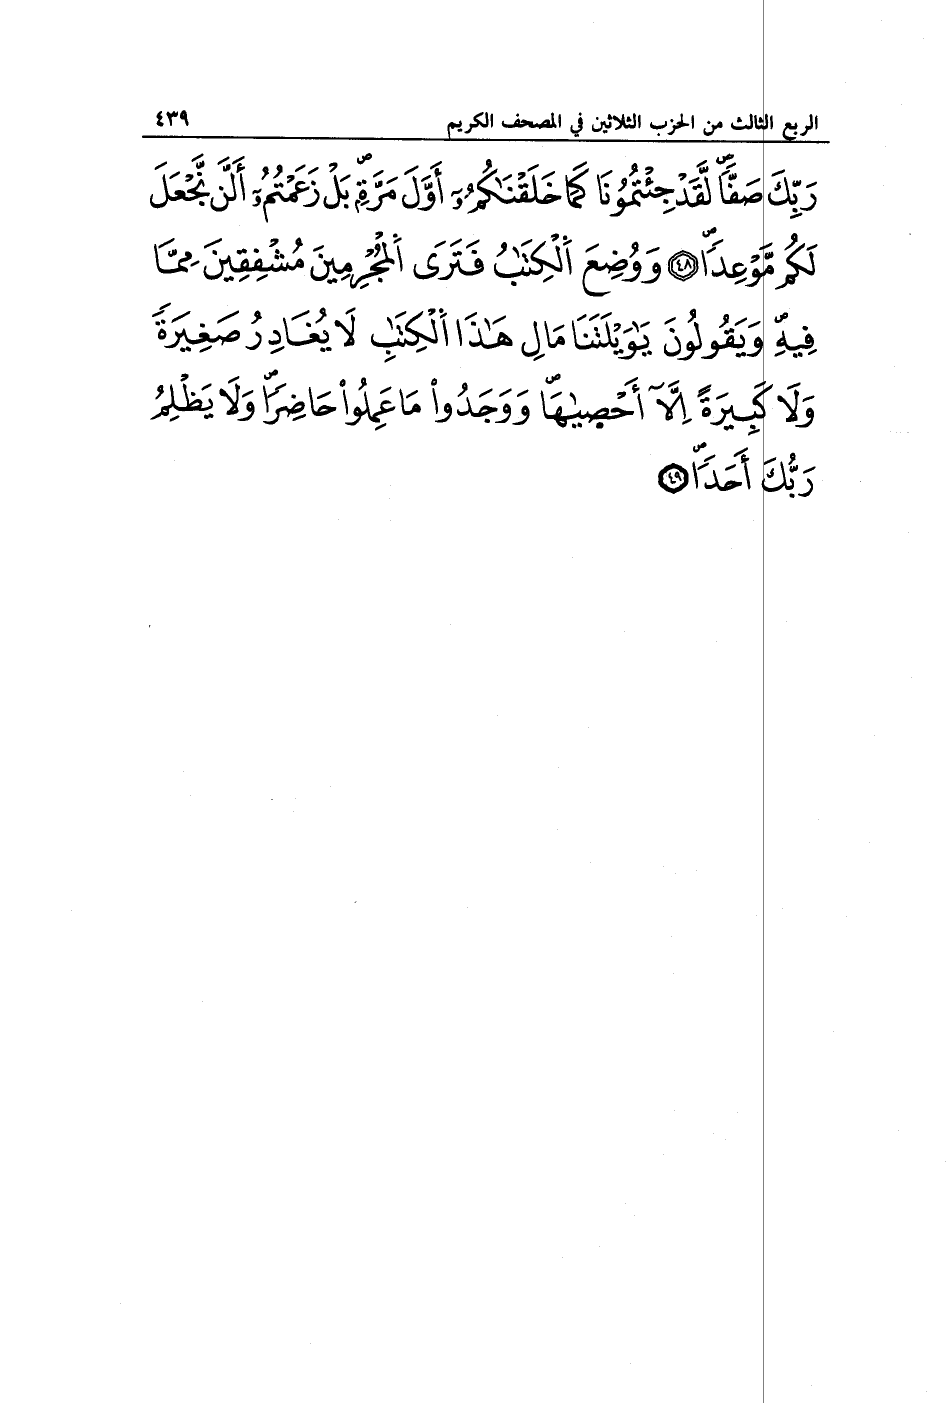 الربع الثالث من الحزب الثلاثين في المصحف الكريم ٤٣٩
رَبِّكَ صَفّٗاۖ لَّقَدْ جِئْتُمُونَا كَمَا خَلَقْنَٰكُمُۥٓ أَوَّلَ مَرَّةِۢۖ بَلْ زَعَمْتُمُۥٓ أَلَّن نَّجْعَلَ
لَكُم مَّوْعِداٗۖ ٤٨ وَوُضِعَ اَ۬لْكِتَٰبُ فَتَرَى اَ۬لْمُجْرِمِينَ مُشْفِقِينَ مِمَّا
فِيهِۖ وَيَقُولُونَ يَٰوَيْلَتَنَا مَالِ هَٰذَا اَ۬لْكِتَٰبِ لَا يُغَادِرُ صَغِيرَةٗ
وَلَا كَبِيرَةً اِلَّآ أَحْصٜىٰهَاۖ وَوَجَدُواْ مَا عَمِلُواْ حَاضِراٗۖ وَلَا يَظْلِمُ
رَبُّكَ أَحَداٗۖ ٤٩